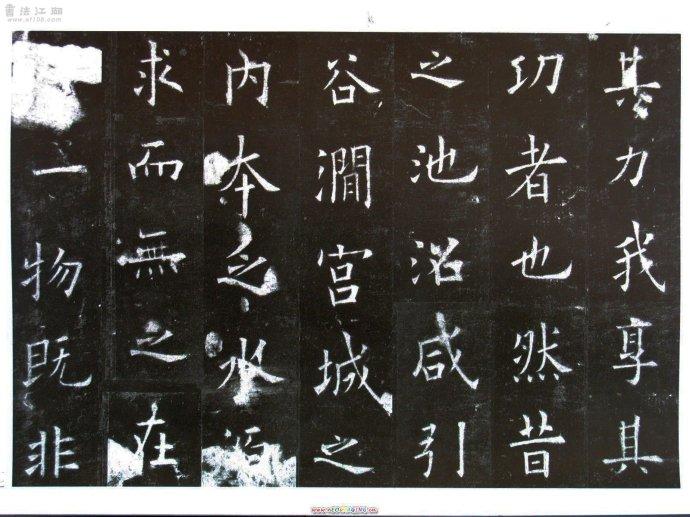 書法江湖
www.sf108.com
其力我享其
功者也然昔
之池沼咸引
谷澗宮城之
内本乏水
求而無之在
一物既非